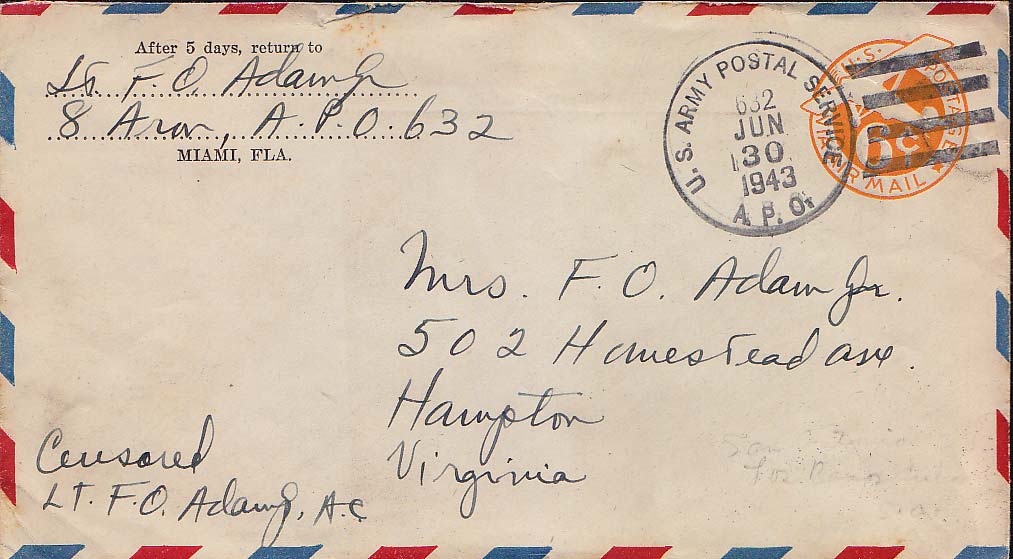 After 5 days, return to
Lt F. O. Adam Jr
8 Aron, A.P.O. 632
MIAMI, FLA.
U.S. ARMY POSTAL SERVICE
632
JUN
30
1943
A.P.O.
U.S. POSTAGE
6c
VIA AIR MAIL
Mrs. F. O. Adam Jr.
502 Homestead ave.
Hampton
Virginia
Censored
LT. F. O. Adam Jr, A.C.